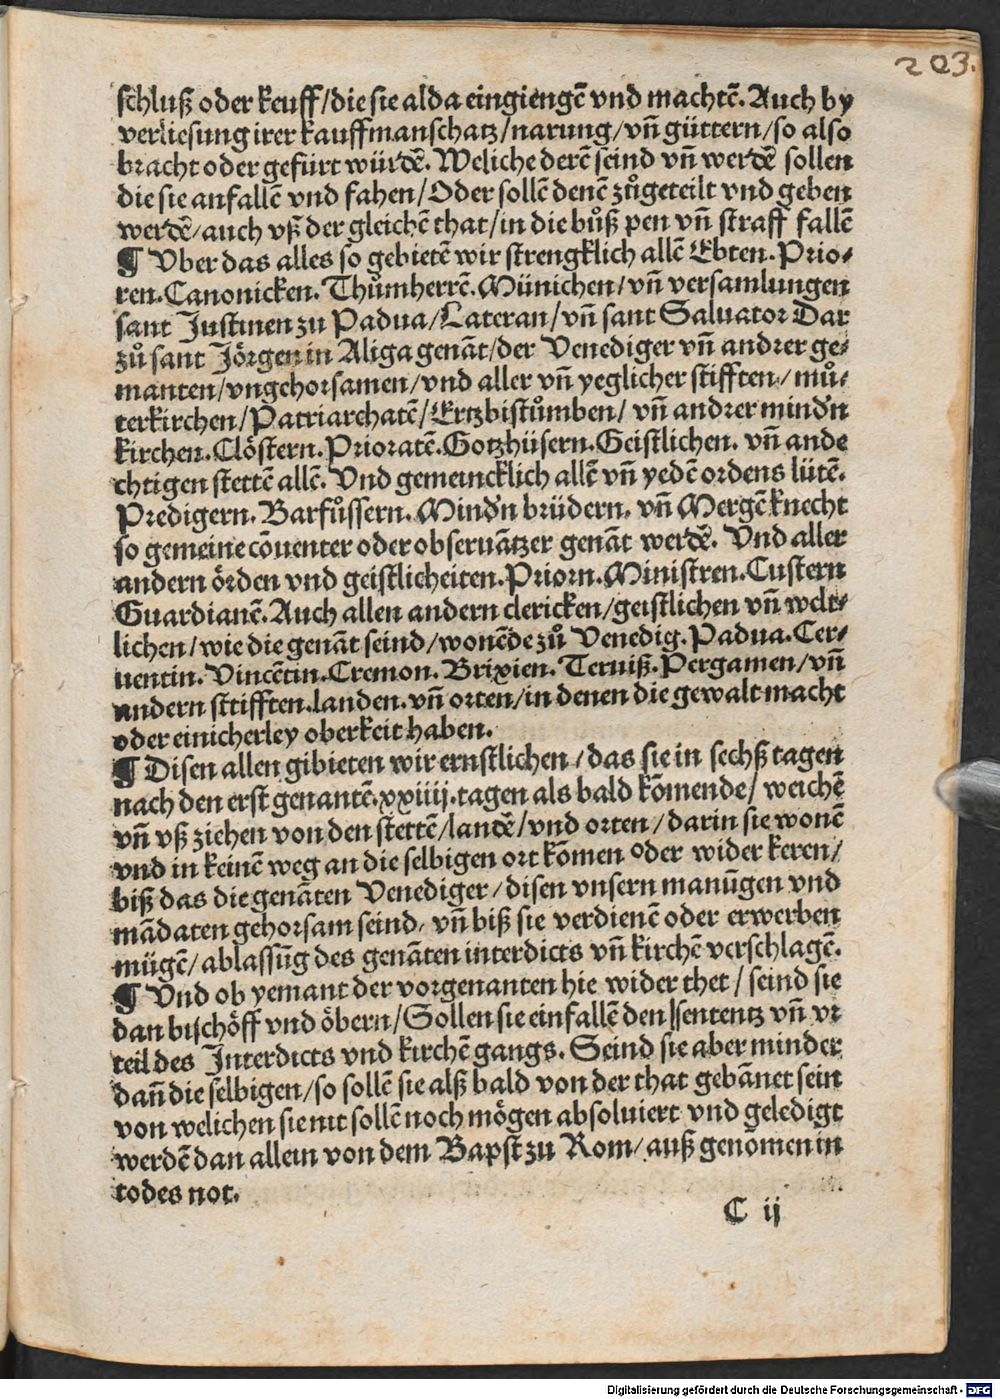 203.
schluß oder keuff/die sie alda eingiengē vnd machtē. Auch by
verliesung irer kauffmanschatz/narung/vñ güttern/so also
bracht oder gefürt würdē. Weliche derē seind vñ werdē sollen
die sie anfallē vnd fahen/Oder sollē denē zůgeteilt vnd geben
werdē/auch vß der gleichē that/in die bůß pen vñ straff fallē
¶ Vber das alles so gebietē wir strengklich allē Ebten. Prio⸗
ren. Canonicken. Thůmherrē. Münichen/vñ versamlungen
sant Justinen zu Padua/Lateran/vñ sant Saluator Dar
zů sant Jörgen in Aliga genāt/der Venediger vñ andrer ge⸗
manten/vngehorsamen/vnd aller vñ yeglicher stifften/mů⸗
terkirchen/Patriarchatē/Ertzbistůmben/vñ andrer mindn̄
kirchen. Clöstern. Prioratē. Gotzhüsern. Geistlichen. vñ ande
chtigen stettē allē. Vnd gemeincklich allē vñ yedē ordens lütē.
Predigern. Barfůssern. Mindn̄ brüdern. vñ Mergē knecht
so gemeine cōuenter oder obseruātzer genāt werdē. Vnd aller
andern örden vnd geistlicheiten. Priorn. Ministren. Custern
Guardianē. Auch allen andern clericken/geistlichen vñ welt⸗
lichen/wie die genāt seind/wonēde zů Venedig. Padua. Cer⸗
uentin. Vincētin. Cremon. Brixien. Teruiß. Pergamen/vñ
andern sttifften. landen. vñ orten/in denen die gewalt macht
oder einicherley oberkeit haben.
¶ Disen allen gibieten wir ernstlichen/das sie in sechß tagen
nach den erst genantē. xxiiij. tagen als bald kōmende/weichē
vñ vß ziehen von den stettē/landē/vnd orten/darin sie wonē
vnd in keinē weg an die selbigen ort kōmen oder wider keren/
biß das die genāten Venediger/disen vnsern manūgen vnd
mādaten gehorsam seind, vñ biß sie verdienē oder erwerben
mügē/ablassūg des genāten interdicts vñ kirchē verschlagē.
¶ Vnd ob yemant der vorgenanten hie wider thet/seind sie
dan bischöff vnd öbern/Sollen sie einfallē den sententz vñ vr
teil des Interdicts vnd kirchē gangs. Seind sie aber minder
dañ die selbigen/so sollē sie alß bald von der that gebānet sein
von welichen sie nit sollē noch mögen absoluiert vnd geledigt
werdē dan allein von dem Bapst zu Rom/auß genōmen in
todes not.
C ij
Digitalisierung gefördert durch die Deutsche Forschungsgemeinschaft - DFG